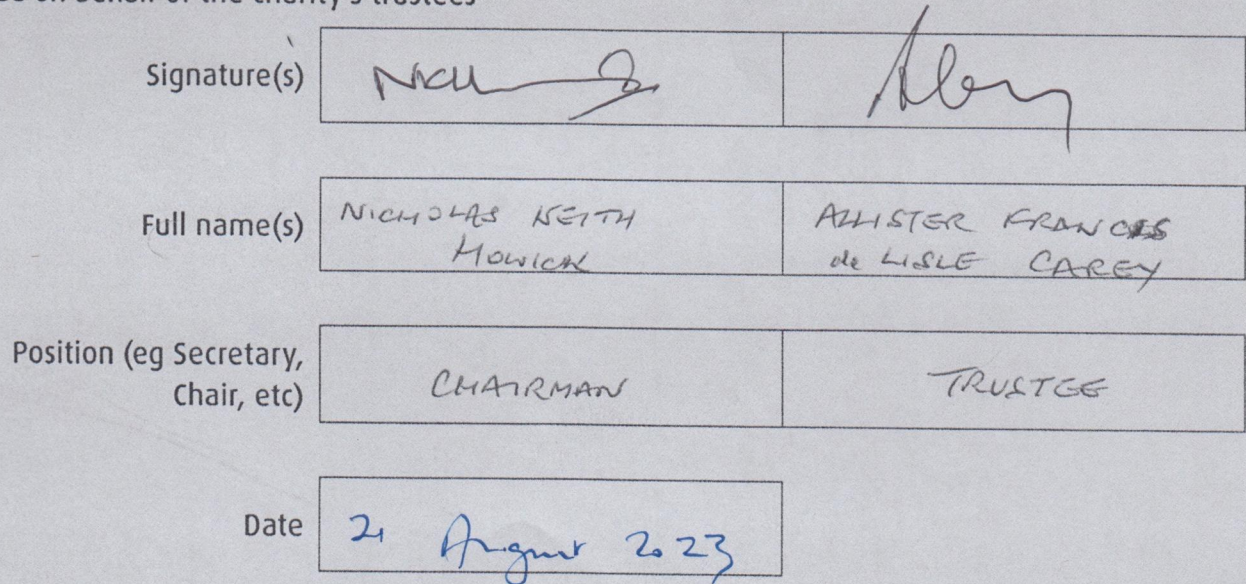 on behalf of the charity's trustees
Signature(s)
Full name(s)
NICHOLAS KEITH
HOWICK
ALLISTER FRANCIS
de LISLE CAREY
Position (eg Secretary,
Chair, etc)
CHAIRMAN
TRUSTEE
Date
21 August 2023